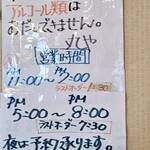 アルコール類は
お出しできません。
営業時間
AM PM
11:00〜2:00
ラストオーダー1:30
PM PM
5:00〜8:00
ラストオーダー7:30
夜は予約承ります。